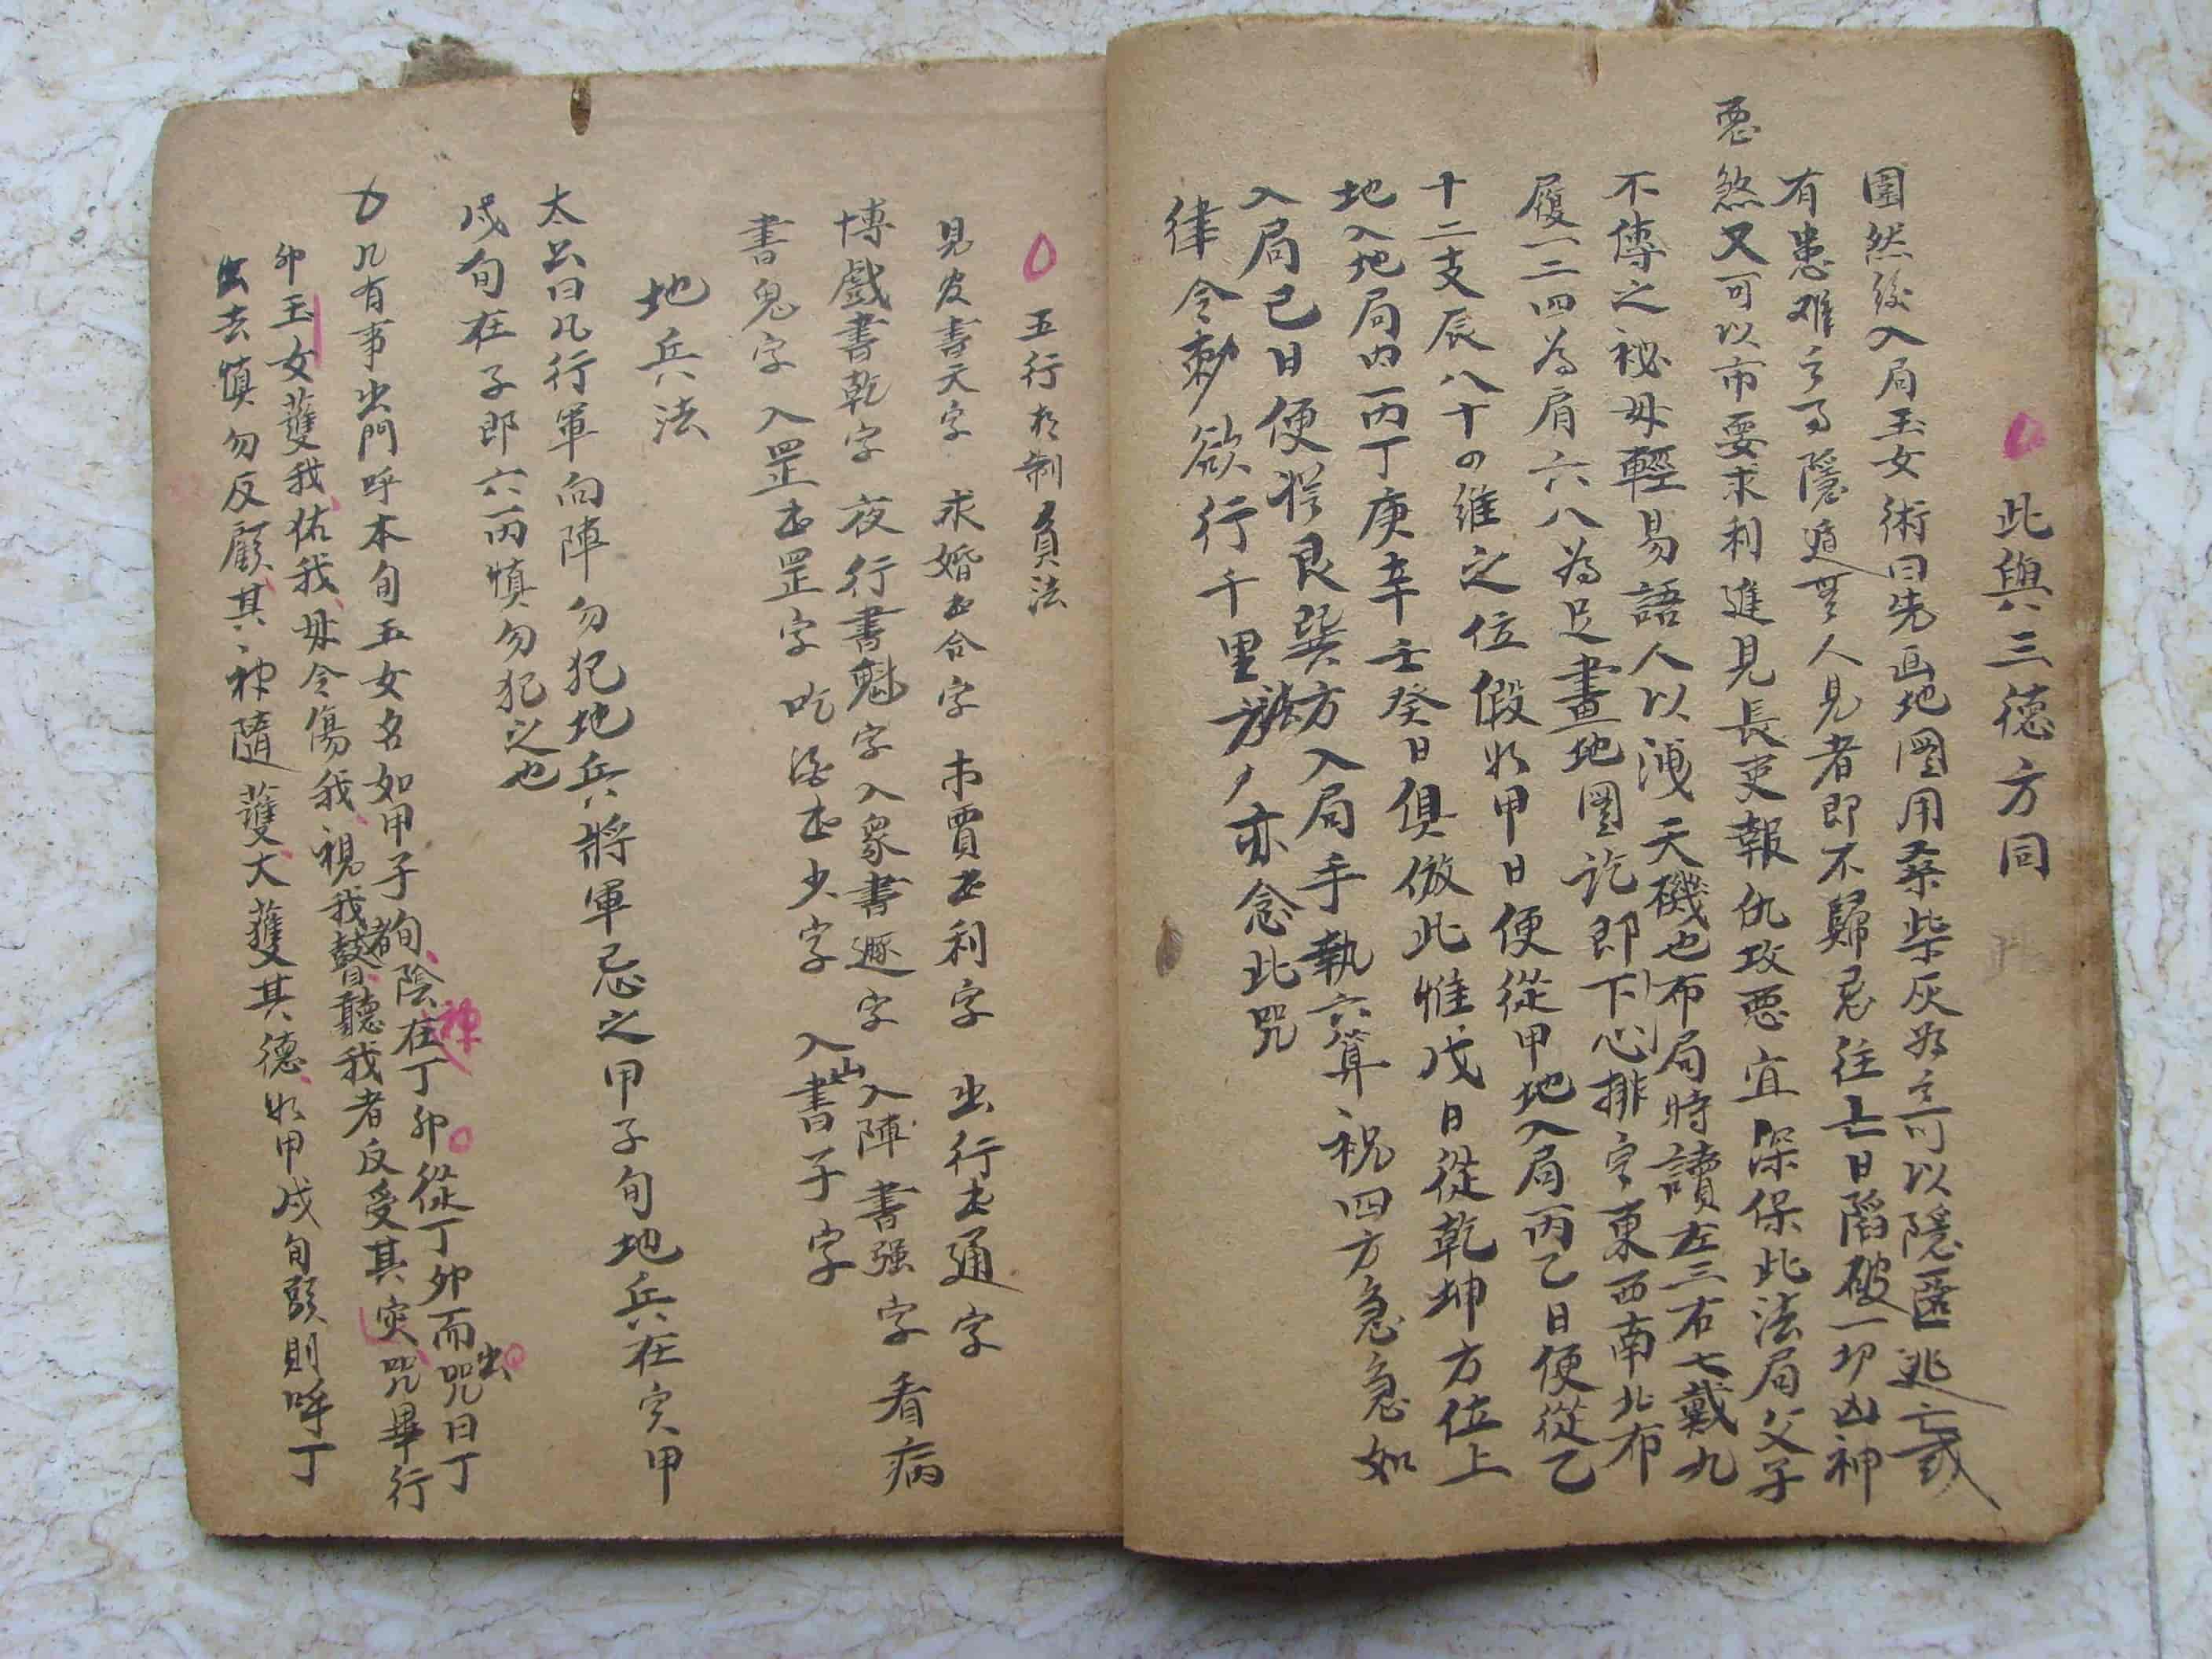 此與三德方同
圖然後入局玉女術曰先画地圖用桑柴灰為之可以隱匿逃亡或
有患难之可隱遁無人見者即不歸忌往亡日陷破一切凶神
惡煞又可以市要求利進見長吏報仇攻惡宜深保此法局父子
不傳之祕毋輕易語人以洩天磯也布局時讀左三右七戴九
履一二四為肩六八為足畫地圖訖即下心排字東西南北布
十二支辰八十四維之位假如甲日便從甲地入局丙乙日便從乙
地入地局内一丙丁庚辛壬癸日俱倣此惟戊日從乾坤方位上
入局己日便從艮巽方入局手執六算祝四方急急如
律令勅欲行千里亦念此咒
五行相制負法
見官書天字 求婚書合字 市賈書利字 出行書通字
博戲書乾字 夜行書魁字 入眾書遯字 入陣書强字 看病
書鬼字 入罡書罡字 吃酒書少字 入山書子字
地兵法
太公曰凡行軍向陣勿犯地兵將軍忌之甲子旬地兵在寅甲
戌旬在子即六丙慎勿犯之也
凡有事出門呼本旬玉女名如甲子旬陰神在丁卯從丁卯而出咒曰丁
卯玉女護我佑我毋令傷我視我者瞽聽我者反受其灾咒畢行
出去慎勿反顧其神隨護大獲其德如甲戌旬頭則呼丁